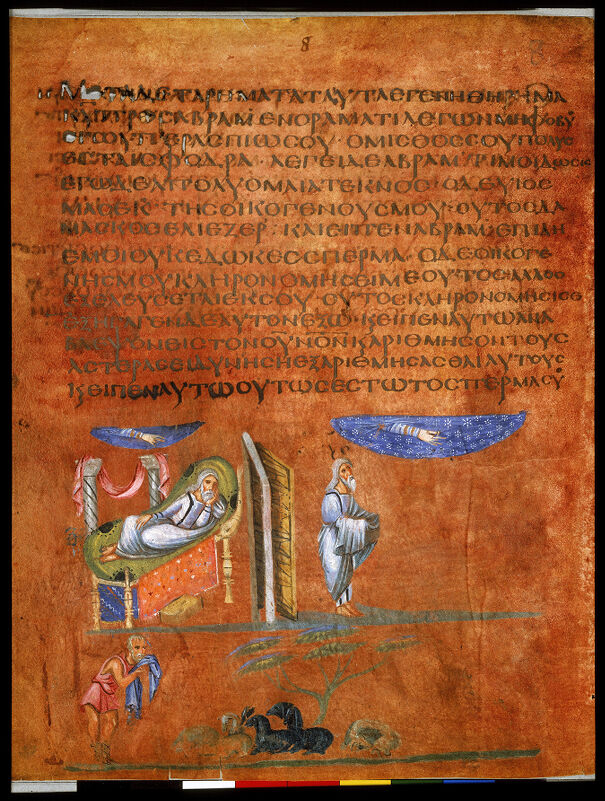 8
ΜΕΤΑΔΕΤΑΡΗΜΑΤΑΤΑΥΤΑΕΓΕΝΗΘΗΡΗΜΑ
ΚΥΠΡΟϹΑΒΡΑΜΕΝΟΡΑΜΑΤΙΛΕΓΩΝΜΗΦΟΒΥ
ΕΓΩΥΠΕΡΑϹΠΙΩϹΟΥ·ΟΜΙϹΘΟϹϹΟΥΠΟΛΥϹ
ΕϹΤΑΙϹΦΟΔΡΑ·ΛΕΓΕΙΔΕΑΒΡΑΜ·ΤΙΜΟΙΔΩϹΙϹ
ΕΓΩΔΕΑΠΟΛΥΟΜΑΙΑΤΕΚΝΟϹ·ΟΔΕΥΙΟϹ
ΜΑϹΕΚ·ΤΗϹΟΙΚΟΓΕΝΟΥϹΜΟΥ·ΟΥΤΟϹΔΑ
ΜΑϹΚΟϹΕΛΙΕΖΕΡ·ΚΑΙΕΙΠΕΝΑΒΡΑΜ·ΕΠΙΔΗ
ΕΜΟΙΟΥΚΕΔΩΚΕϹϹΠΕΡΜΑ·ΟΔΕΟΙΚΟΓΕ
ΝΗϹΜΟΥΚΛΗΡΟΝΟΜΗϹΕΙΜΕΟΥΤΟϹΑΛΛΟϹ
ΕΞΕΛΕΥϹΕΤΑΙΕΚϹΟΥ ΟΥΤΟϹΚΛΗΡΟΝΟΜΗϹΙϹΕ
ΕΞΗΓΑΓΕΝΔΕΑΥΤΟΝΕΞΩ·ΚΕΙΠΕΝΑΥΤΩΑΝΑ
ΒΛΕΨΟΝΕΙϹΤΟΝΟΥΝΟΝΚΑΡΙΘΜΗϹΟΝΤΟΥϹ
ΑϹΤΕΡΑϹΕΙΔΥΝΗϹΗΕΞΑΡΙΘΜΗϹΑϹΘΑΙΑΥΤΟΥϹ
ΚΕΙΠΕΝΑΥΤΩΟΥΤΩϹΕϹΤΩΤΟϹΠΕΡΜΑϹΥ